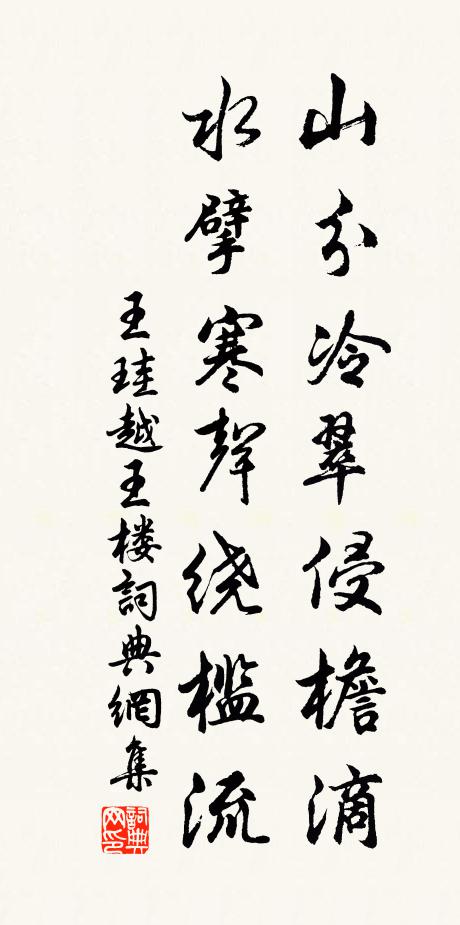 山分冷翠侵檐滴
水擘寒聲绕槛流
王珪越王楼詞典網集
詞典
网印